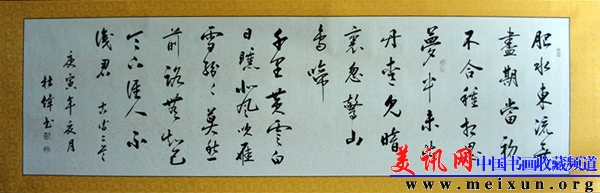 肥水東流無
盡期當初
不合種相思
夢中未比
丹青見暗
裏忽驚山
鳥啼
千里黄雲白
日曛北風吹雁
雪紛々莫愁
前路無知己
天下誰人不
識君 古詩二首
庚寅年夏月
杜偉书
美讯网 中国书画收藏频道
www.meixun.org